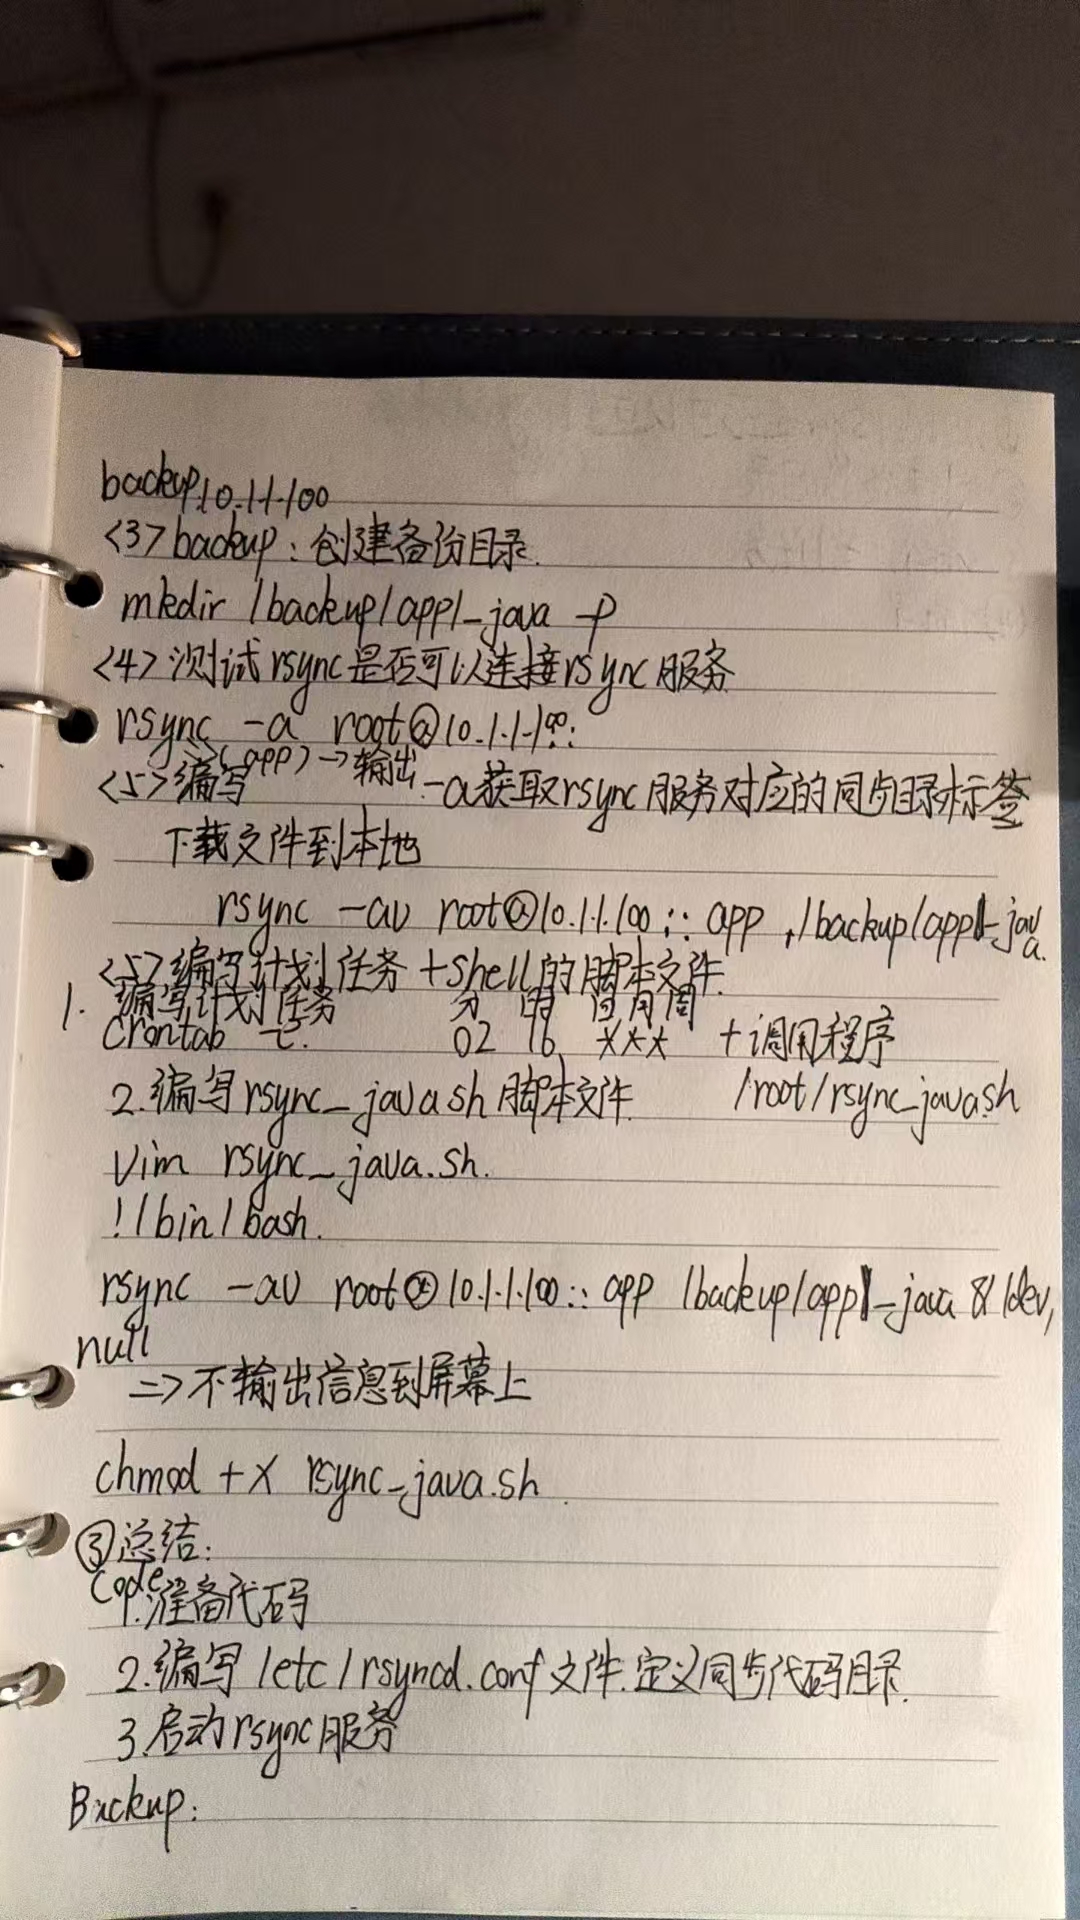 backup 10.1.1.100
<3> backup：创建备份目录.
mkdir /backup/app1_java -p
<4> 测试rsync是否可以连接rsync服务
rsync -a root@10.1.1.100::
=>(app)→输出
<5>编写 -a获取rsync服务对应的同步目录标签
下载文件到本地
rsync -av root@10.1.1.100::app /backup/app1_java.
<5>编写计划任务+shell的脚本文件.
1. 编写计划任务 分 时 日月周
Crontab -e. 02 16 *** +调用程序
2.编写rsync_java.sh脚本文件. /root/rsync_java.sh
Vim rsync_java.sh.
!/bin/bash.
rsync -av root@10.1.1.100::app /backup/app1_java & /dev/
null
=>不输出信息到屏幕上
chmod +x rsync_java.sh.
③总结：
Code
1.准备代码
2.编写/etc/rsyncd.conf文件.定义同步代码目录.
3.启动rsync服务
Backup：